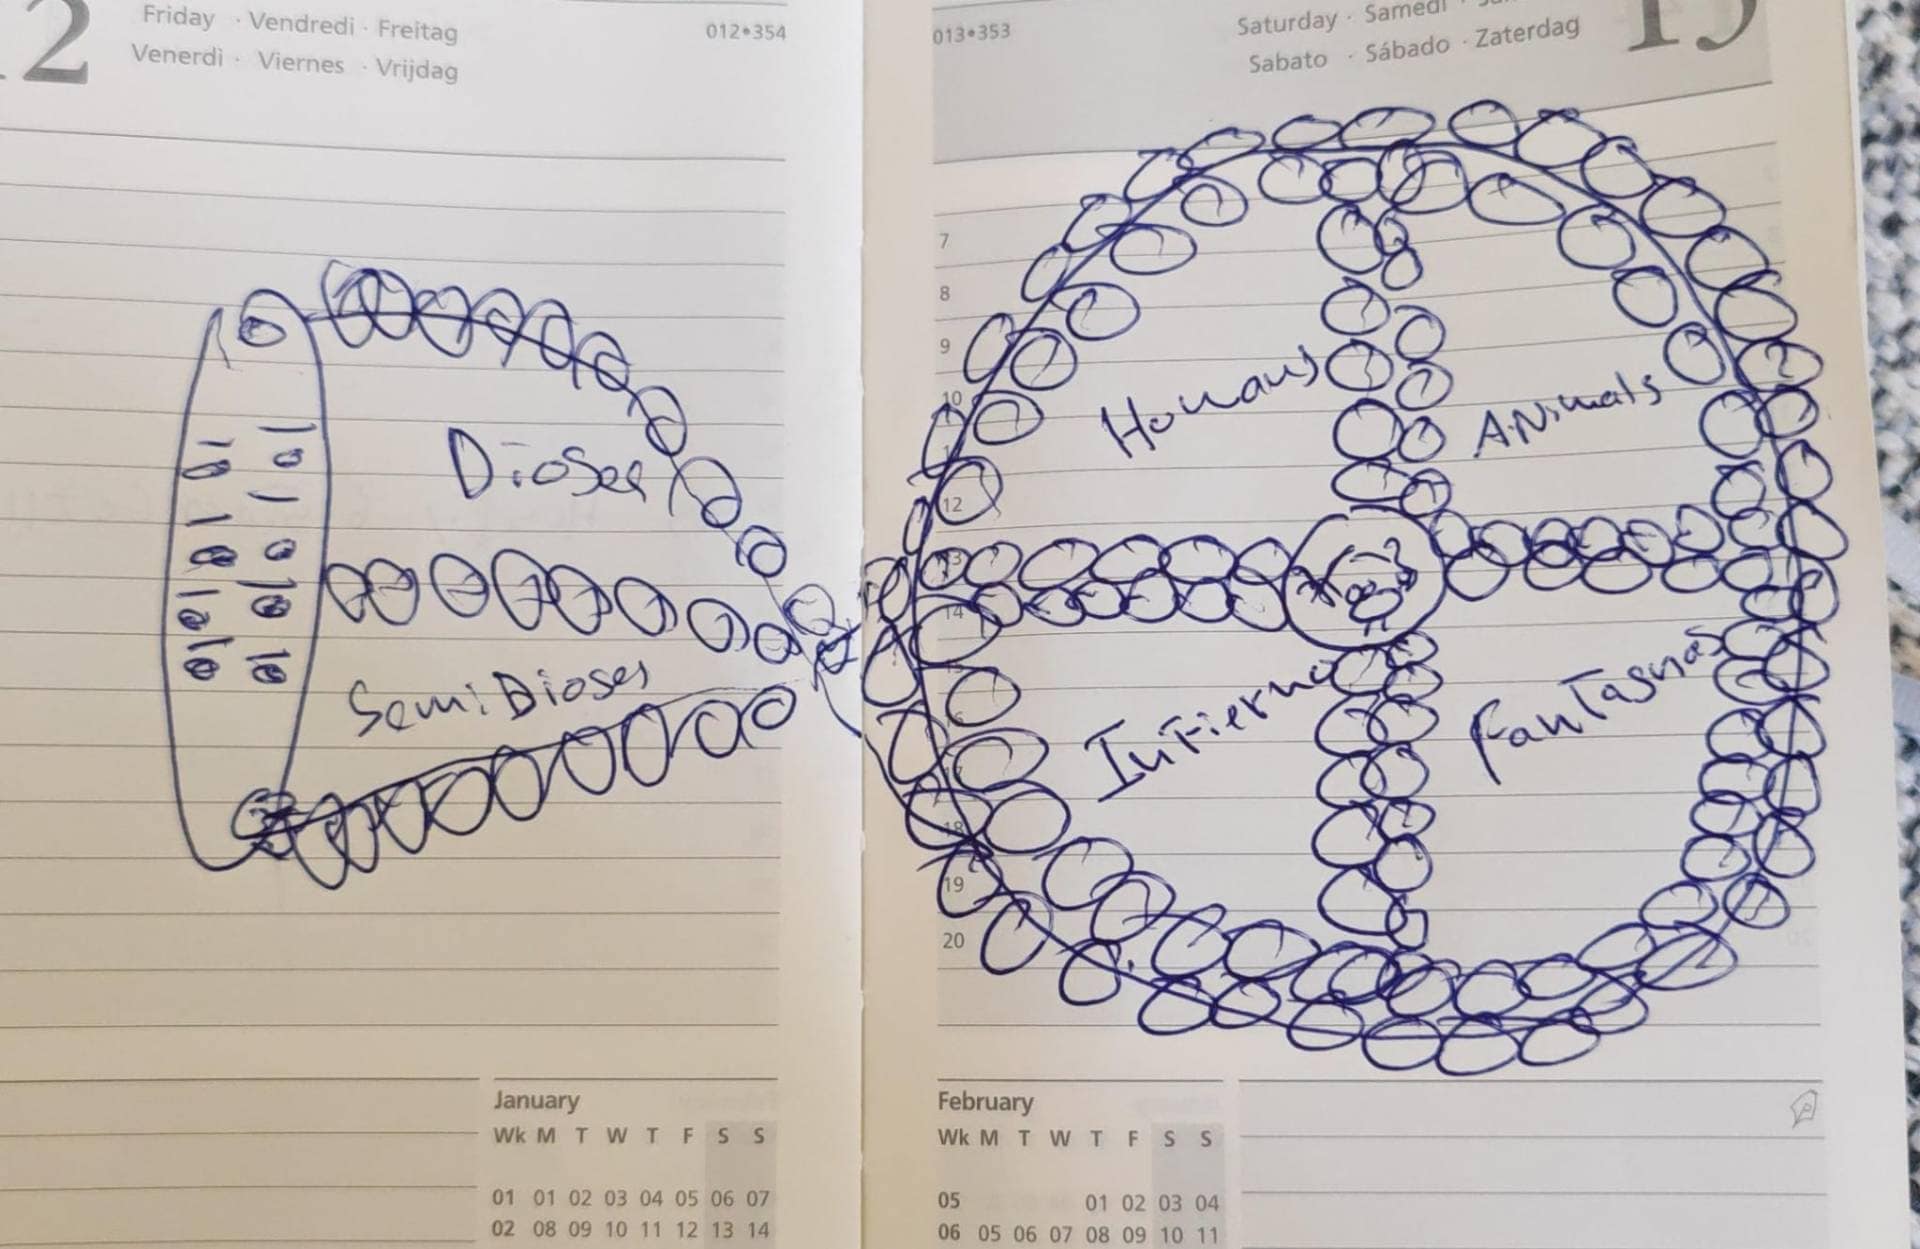 2
Friday · Vendredi · Freitag
Venerdì · Viernes · Vrijdag
012•354
Dioses
SemiDioses
January
Wk M T W T F S S
01 01 02 03 04 05 06 07
02 08 09 10 11 12 13 14
013•353
Saturday · Samedi ·
Sabato · Sábado · Zaterdag
7
8
9
10
12
13
14
18
19
20
Humans
Animals
Infierno
Fantasmas
February
Wk M T W T F S S
05 01 02 03 04
06 05 06 07 08 09 10 11